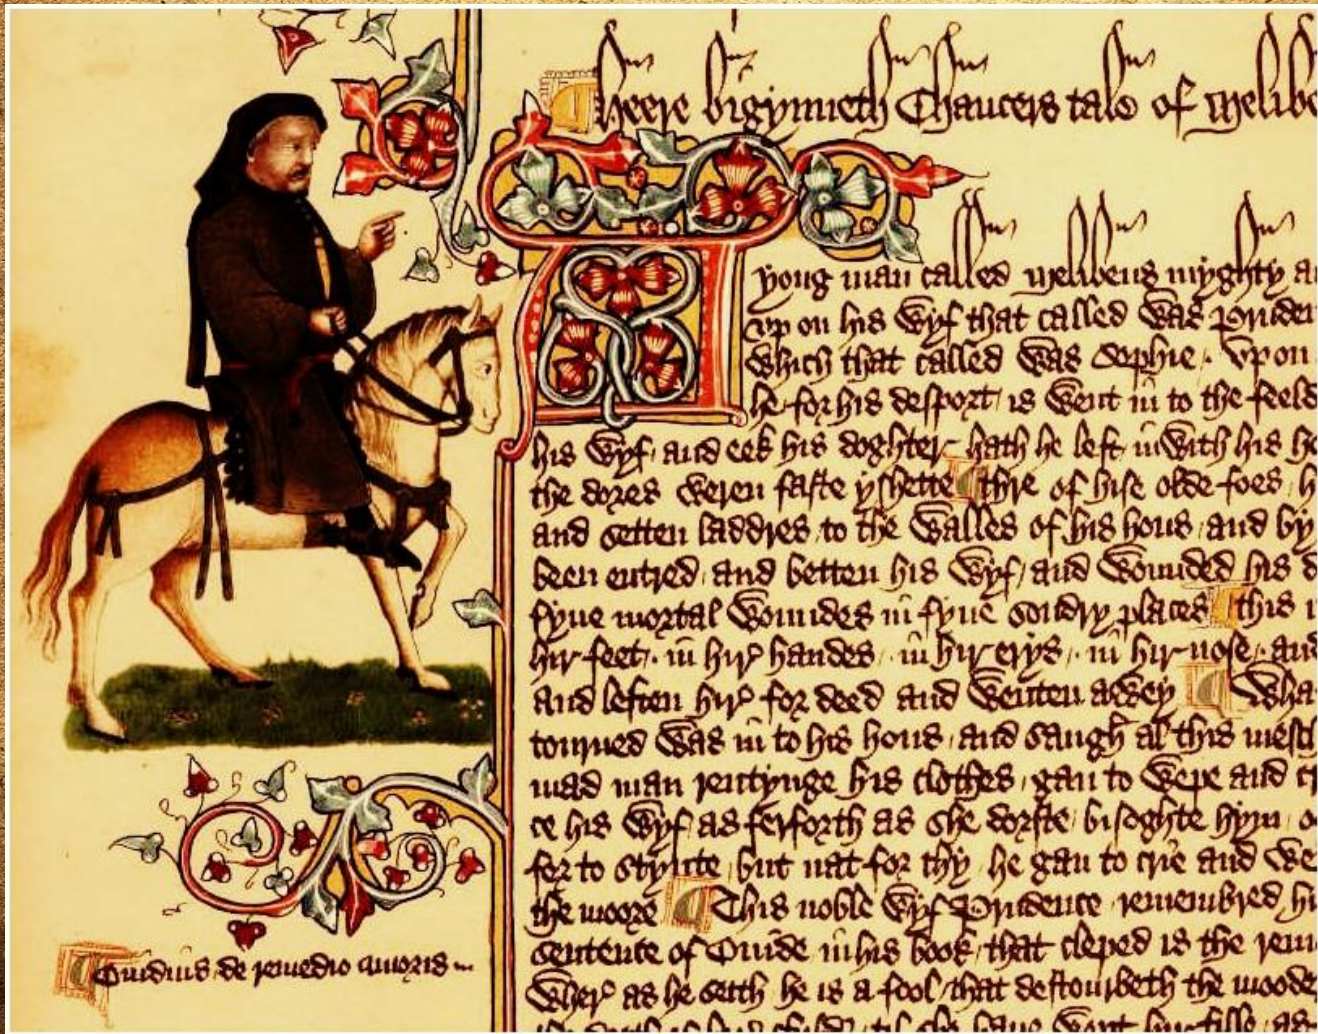 Heere bigynneth Chaucers tale of Melibe
A
yong man called Melibeus myghty a
vp on his wyf that called was Pruden
which that called was Sophie. Vpon
he for his desport is went in to the feeld
his wyf and eek his doghter hath he left inwith his h
the dores weren faste yshette thre of hise olde foes h
and setten laddres to the walles of his hous and by
been entred and betten his wyf and wounded his d
fyue mortal woundes in fyue sondry places this
hir feet. in hir handes. in hir erys. in hir nose. and
and leften hir for deed and wenten awey Wha
tourned was in to his hous and saugh al this mesch
mad man rentynge his clothes gan to wepe and cr
ce his wyf as ferforth as she dorste bisoghte hym o
for to stynte but nat for thy he gan to crie and we
the moore This noble wyf Prudence remembred hi
sentence of Ouide in his book that cleped is the rem
wher as he seith he is a fool that destourbeth the mooder
Ouidius de remedio amoris